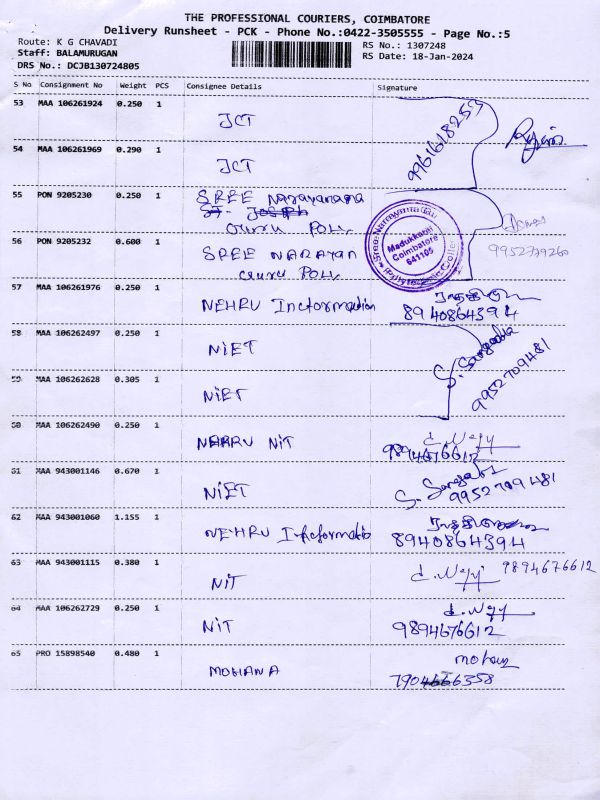 THE PROFESSIONAL COURIERS, COIMBATORE
Delivery Runsheet - PCK - Phone No.:0422-3505555 - Page No.:5
Route: K G CHAVADI
Staff: BALAMURUGAN
DRS No.: DCJB130724805
RS No.: 1307248
RS Date: 18-Jan-2024
S No Consignment No Weight PCS Consignee Details Signature
53 MAA 106261924 0.250 1
JCT
9961618253
54 MAA 106261969 0.290 1
JCT
55 PON 9205230 0.250 1 SREE Narayanana
Guru POLL
56 PON 9205232 0.600 1
SREE NARAYAN
Guru POLL
Sree Narayana Guru
Madukkarai
Coimbatore
641105
Polytechnic College
9952779260
57 MAA 106261976 0.250 1
NEHRU Information
8940864394
58 MAA 106262497 0.250 1
NiET
S. Sangeetha
9952709481
59 MAA 106262628 0.305 1
NiET
60 MAA 106262490 0.250 1
NEHRU NiT
9894676612
61 MAA 943001146 0.670 1
NiET
9952709481
62 MAA 943001060 1.155 1
NEHRU Informatio
8940864394
63 MAA 943001115 0.380 1
NiT
9894676612
64 MAA 106262729 0.250 1
NiT
9894676612
65 PRO 15898540 0.480 1
MOHANA